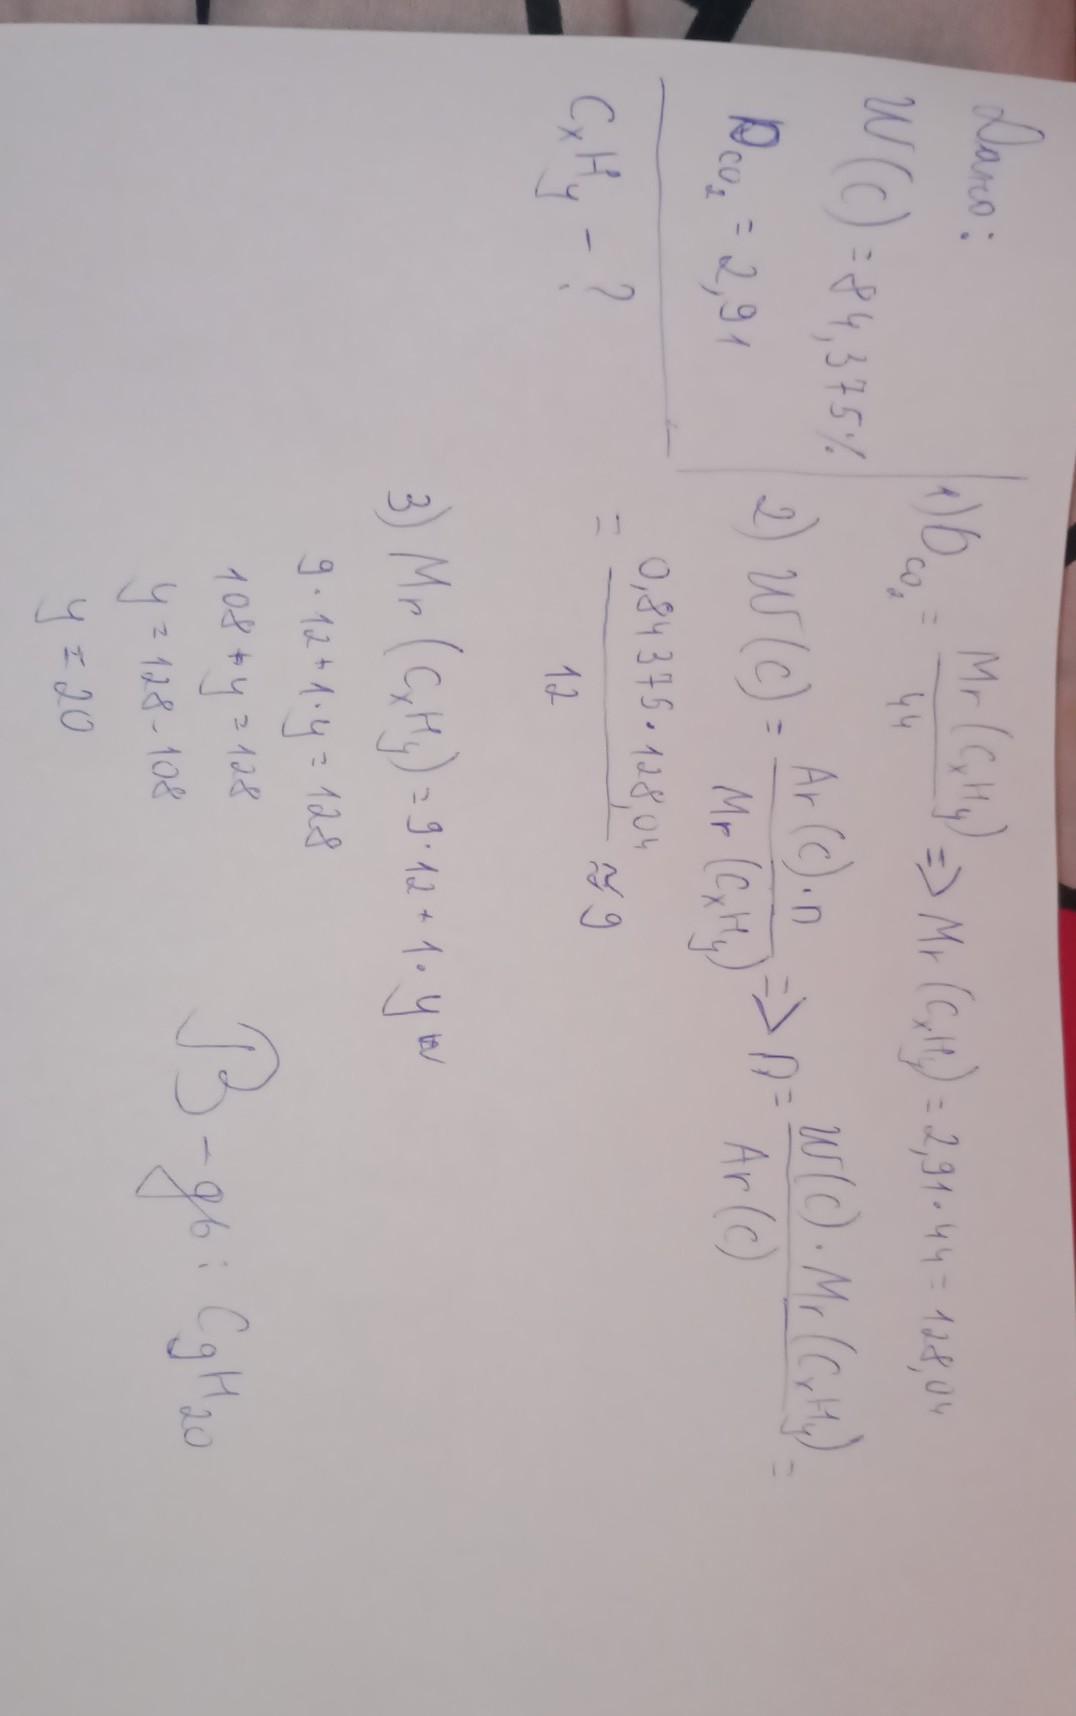 Дано:
W(C) = 84,375%
D_CO₂ = 2,91
CₓHᵧ - ?
1) D_CO₂ = Mr(CₓHᵧ) / 44 => Mr(CₓHᵧ) = 2,91 · 44 = 128,04
2) W(C) = Ar(C) · n / Mr(CₓHᵧ) => n = W(C) · Mr(CₓHᵧ) / Ar(C) =
= 0,84375 · 128,04 / 12 ≈ 9
3) Mr(CₓHᵧ) = 9 · 12 + 1 · y
9 · 12 + 1 · y = 128
108 + y = 128
y = 128 - 108
y = 20
В-дь: C₉H₂₀